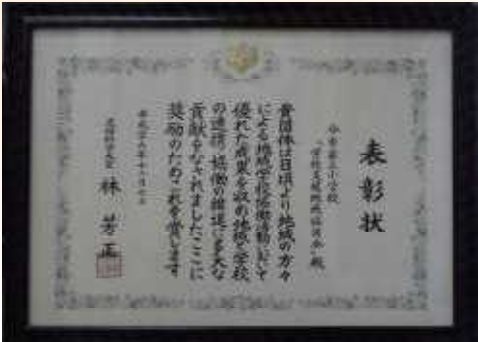 表彰状
小学校
殿
貴団体は日頃より地域の方々
による地域学校協働活動において
優れた成果を収め地域と学校
の連携・協働の推進に多大な
貢献をなされましたここに
奨励のためこれを賞します
文部科学大臣 林 芳正